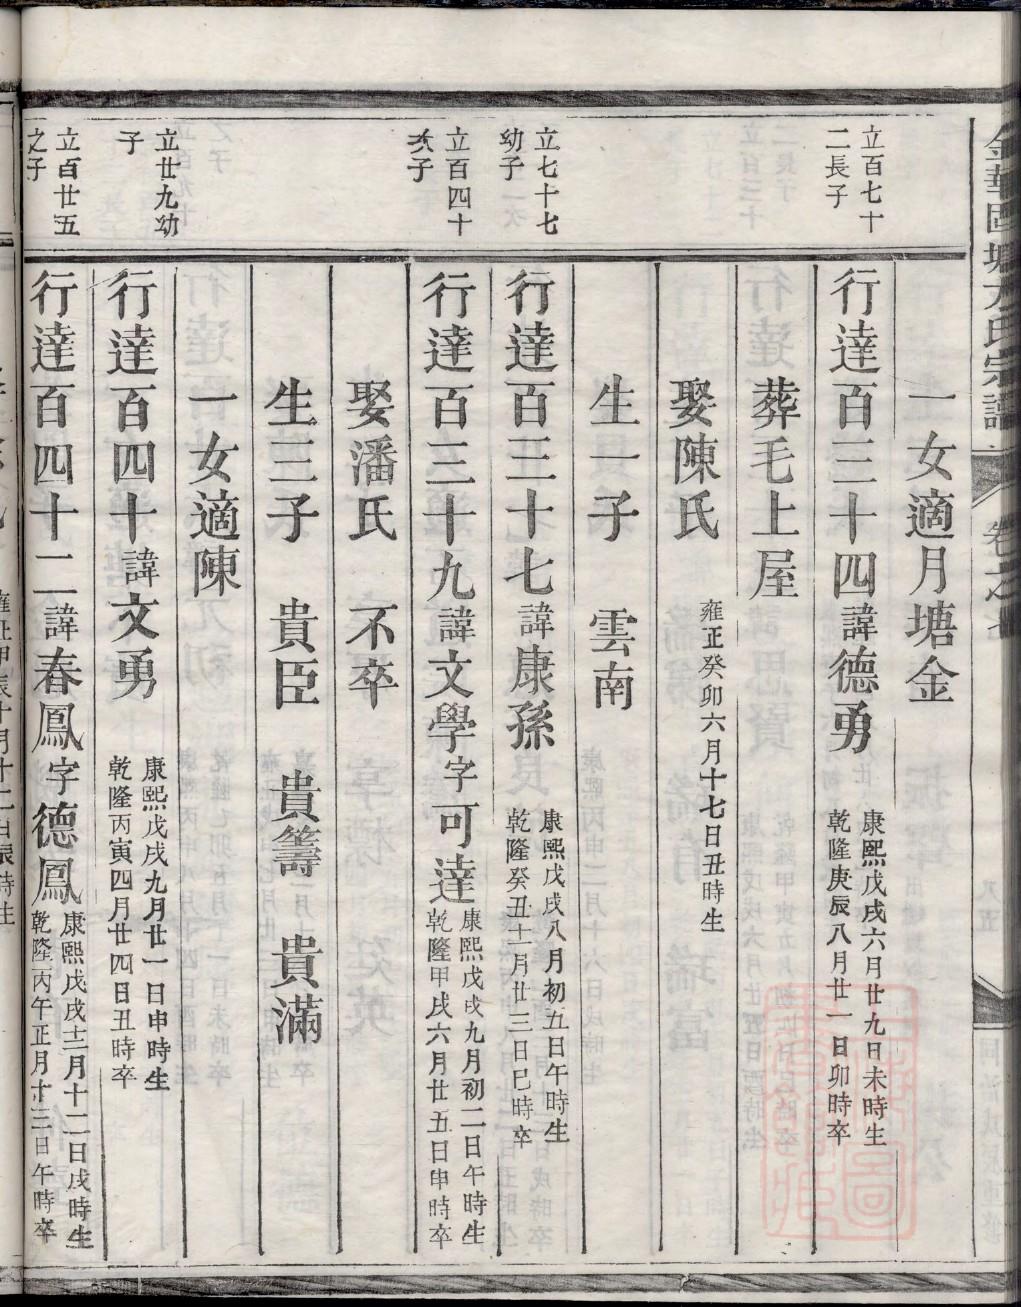 一女適月塘金
立百七十二長子
行達百三十四諱德勇 康熙戊戌六月廿九日未時生 乾隆庚辰八月廿一日卯時卒
葬毛上屋
娶陳氏 雍正癸卯六月十七日丑時生
生一子 雲南
立七十七幼子
行達百三十七諱康孫 康熙戊戌八月初五日午時生 乾隆癸丑十一月廿三日巳時卒
立百四十次子
行達百三十九諱文學字可達 康熙戊戌九月初二日午時生 乾隆甲戌六月廿五日申時卒
娶潘氏 不卒
生三子 貴臣 貴籌 貴滿
一女適陳
立廿九幼子
行達百四十諱文勇 康熙戊戌九月廿一日申時生 乾隆丙寅四月廿四日丑時卒
立百廿五之子
行達百四十二諱春鳳字德鳳 康熙戊戌十二月十二日戌時生 乾隆丙午正月十三日午時卒